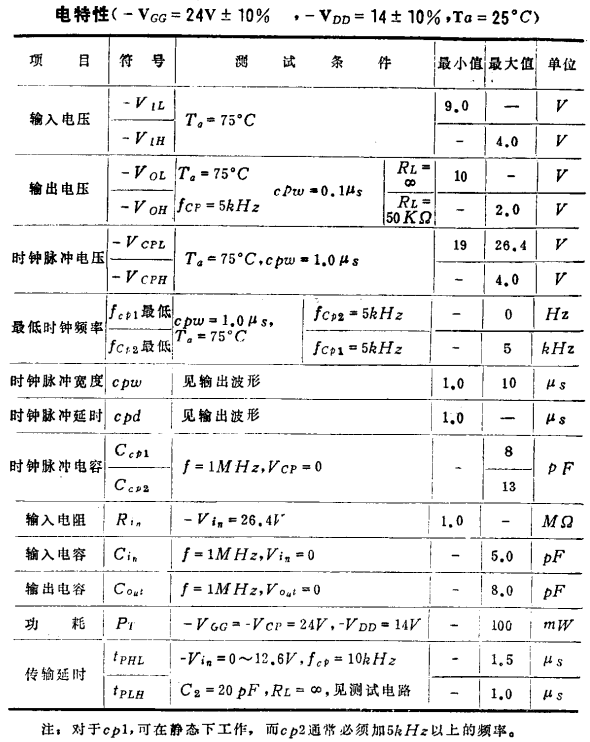 电特性(-VGG=24V±10% ,-VDD=14±10%,Ta=25°C)
项 目 符 号 测 试 条 件 最小值 最大值 单位
输入电压 -VIL Ta=75°C 9.0 — V
-VIH - 4.0 V
输出电压 -VOL Ta=75°C cpw=0.1μs RL=∞ 10 - V
-VOH fCP=5kHz RL=50KΩ - 2.0 V
时钟脉冲电压 -VCPL Ta=75°C,cpw=1.0μs 19 26.4 V
-VCPH - 4.0 V
最低时钟频率 fcp1最低 cpw=1.0μs, Ta=75°C fCp2=5kHz - 0 Hz
fCp2最低 fCp1=5kHz - 5 kHz
时钟脉冲宽度 cpw 见输出波形 1.0 10 μs
时钟脉冲延时 cpd 见输出波形 1.0 — μs
时钟脉冲电容 Ccp1 f=1MHz,VCP=0 - 8 pF
Ccp2 13
输入电阻 Rin -Vin=26.4V 1.0 - MΩ
输入电容 Cin f=1MHz,Vin=0 - 5.0 pF
输出电容 Cout f=1MHz,Vout=0 - 8.0 pF
功 耗 PT -VGG=-VCP=24V,-VDD=14V - 100 mW
传输延时 tPHL -Vin=0~12.6V,fcp=10kHz - 1.5 μs
tPLH C2=20pF,RL=∞,见测试电路 - 1.0 μs
注:对于cp1,可在静态下工作,而cp2通常必须加5kHz以上的频率。